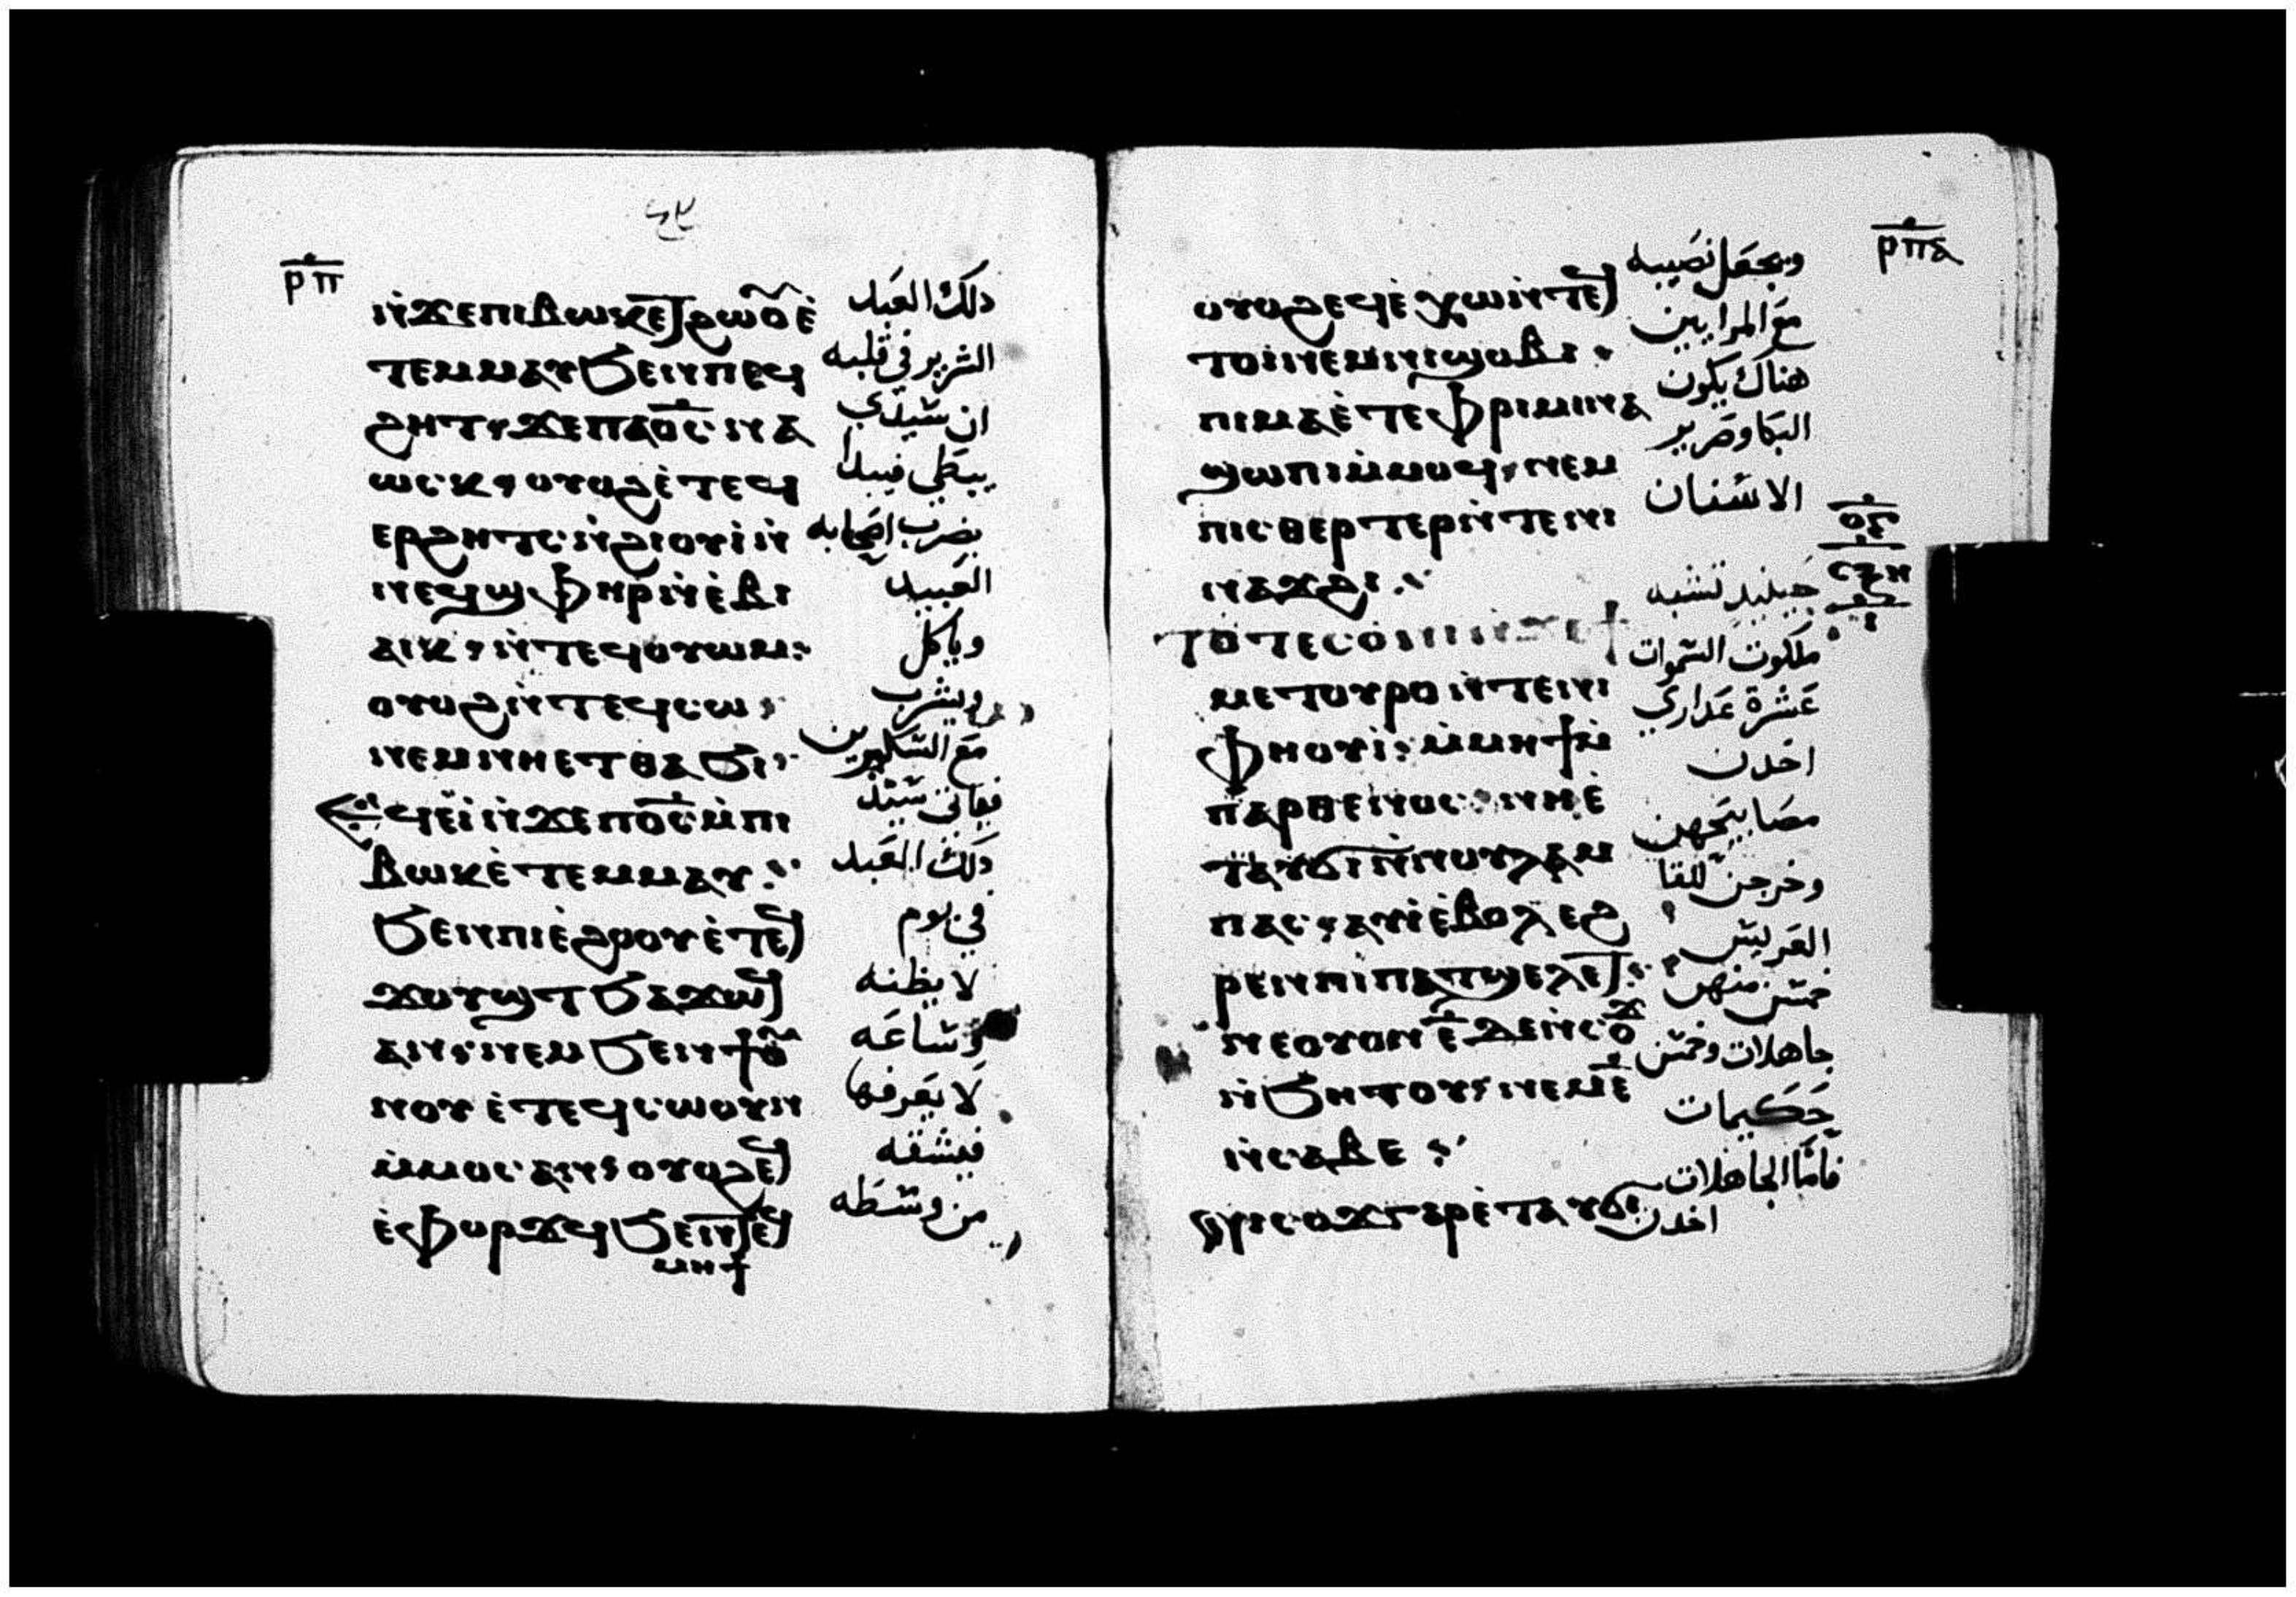 ⲣⲡ
ⲛ̀ϫⲉⲡⲓⲃⲱⲕⲉⲧϩⲱⲟⲩⲉ̀ دلك العبد
ⲧⲉⲙⲙⲁⲩϧⲉⲛⲡⲉϥ الشرير في قلبه
ϩⲏⲧ⸱ϫⲉⲡⲁⲟ̅ⲥ̅ⲛⲁ ان سيدي
ⲱⲥⲕ⸱ⲟⲩⲟϩⲉ̀ⲧⲉϥ يبطي فيبدا
ⲉⲣϩⲏⲧⲥⲛ̀ϩⲓⲟⲩⲓ̀ⲛ̀ يضرب اصحابه
ⲛⲉϥϣⲫⲏⲣⲛ̀ⲉ̀ⲃⲓ العبيد
ⲁⲓⲕ⸱ⲛ̀ⲧⲉϥⲟⲩⲱⲙ⁚ وياكل
ⲟⲩⲟϩⲛ̀ⲧⲉϥⲥⲱ⸱ ويشرب
ⲛⲉⲙⲛⲏⲉⲧⲑⲁϧⲓ⸱ مع السكيرين
ϥⲉ̀ⲓ̀ⲛ̀ϫⲉⲡⲟ̅ⲥ̅ⲙ̀ⲡⲓ فياتي سيد
ⲃⲱⲕⲉ̀ⲧⲉⲙⲙⲁⲩ⁚ دلك العبد
ϧⲉⲛⲡⲓⲉ̀ϩⲟⲟⲩⲉ̀ⲧⲉϥ في يوم
ϫⲟⲩϣⲧϧⲁϫⲱϥ لا يظنه
ⲁⲛ⸱ⲛⲉⲙϧⲉⲛϯⲟⲩ وساعه
ⲛⲟⲩⲉ̀ⲧⲉϥⲥⲱⲟⲩⲛ لا يعرفها
ⲙ̀ⲙⲟⲥⲁⲛ⸱ⲟⲩⲟϩⲉϥ فيشقه
ⲉ̀ⲫⲟⲣϫϥϧⲉⲛⲧⲉϥ من وسطه
ⲙⲏϯ
ⲣⲡⲁ
ⲟⲩⲟϩⲉϥⲉ̀ⲭⲱⲛ̀ⲧⲉϥ ويجعل نصيبه
ⲧⲟⲓⲛⲉⲙⲛⲓϣⲟⲃⲓ⁚ مع المرايين
ⲡⲓⲙⲁⲉ̀ⲧⲉⲫⲣⲓⲙⲓⲛⲁ هناك يكون
ϣⲱⲡⲓⲙ̀ⲙⲟϥ⸱ⲛⲉⲙ البكا وصرير
ⲡⲓⲥⲑⲉⲣⲧⲉⲣⲛ̀ⲧⲉⲛⲓ الاسنان
ⲛⲁϫϩⲓ⁚
ⲧⲟⲧⲉⲥⲟ̀ⲛⲓⲛ̀ϫⲉϯ حينيد تشبه
ⲙⲉⲧⲟⲩⲣⲟⲛ̀ⲧⲉⲛⲓ ملكوت السموات
ⲫⲏⲟⲩⲓ̀⁚ⲙ̀ⲙⲏϯⲙ̀ عشرة عداري
ⲡⲁⲣⲑⲉⲛⲟⲥ⁚ⲛⲏⲉ̀ اخدن
ⲧⲁⲩϭⲓⲛ̀ⲛⲟⲩⲗⲁⲙ مصابيحهن
ⲡⲁⲥ⸱ⲁⲩⲓ̀ⲉ̀ⲃⲟⲗⲉϩ وخرجن للقا
ⲣⲉⲛⲡⲓⲡⲁⲧϣⲉⲗⲉⲧ⁚ العريس
ⲛⲉⲟⲩⲟⲛⲉ̅ⲇⲉⲛ̀ⲥⲟϫ خمس منهن
ⲛ̀ϧⲏⲧⲟⲩ⸱ⲛⲉⲙⲉ̅ جاهلات وخمس
ⲛ̀ⲥⲁⲃⲉ⁚ حكيمات
ⲛⲓⲥⲟϫⲅⲁⲣⲉ̀ⲧⲁⲩϭⲓ فاما الجاهلات اخدن